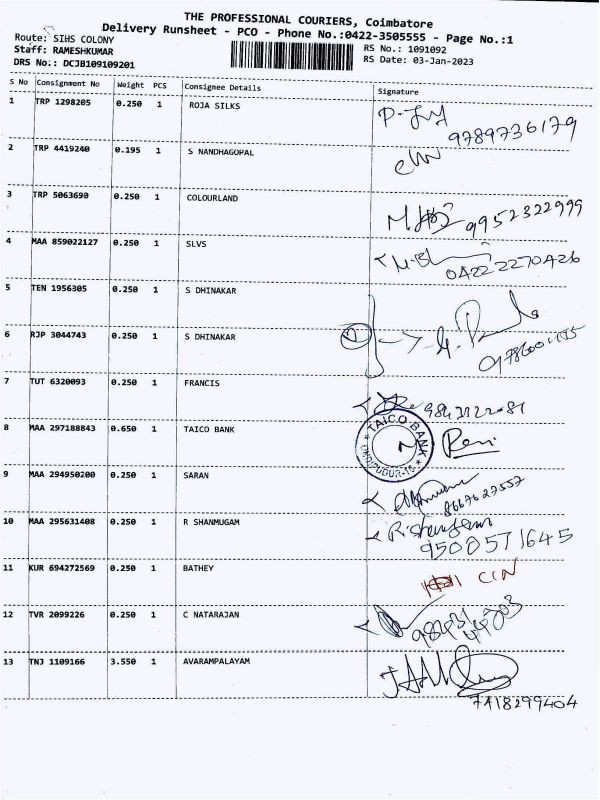 THE PROFESSIONAL COURIERS, Coimbatore
Delivery Runsheet - PCO - Phone No.:0422-3505555 - Page No.:1
Route: SIHS COLONY
RS No.: 1091092
Staff: RAMESHKUMAR
RS Date: 03-Jan-2023
DRS No.: DCJB109109201
S No Consignment No Weight PCS Consignee Details Signature
1 TRP 1298205 0.250 1 ROJA SILKS
9789736179
2 TRP 4419240 0.195 1 S NANDHAGOPAL
3 TRP 5063690 0.250 1 COLOURLAND
9952322999
4 MAA 859022127 0.250 1 SLVS
0422 2270426
5 TEN 1956305 0.250 1 S DHINAKAR
6 RJP 3044743 0.250 1 S DHINAKAR
7 TUT 6320093 0.250 1 FRANCIS
8 MAA 297188843 0.650 1 TAICO BANK
TAICO BANK
9 MAA 294950200 0.250 1 SARAN
8667627557
10 MAA 295631408 0.250 1 R SHANMUGAM
9500571645
11 KUR 694272569 0.250 1 BATHEY
CIN
12 TVR 2099226 0.250 1 C NATARAJAN
13 TNJ 1109166 3.550 1 AVARAMPALAYAM
7418299404